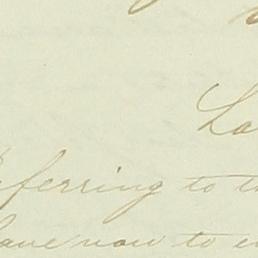 La
eferring to t
have now to e